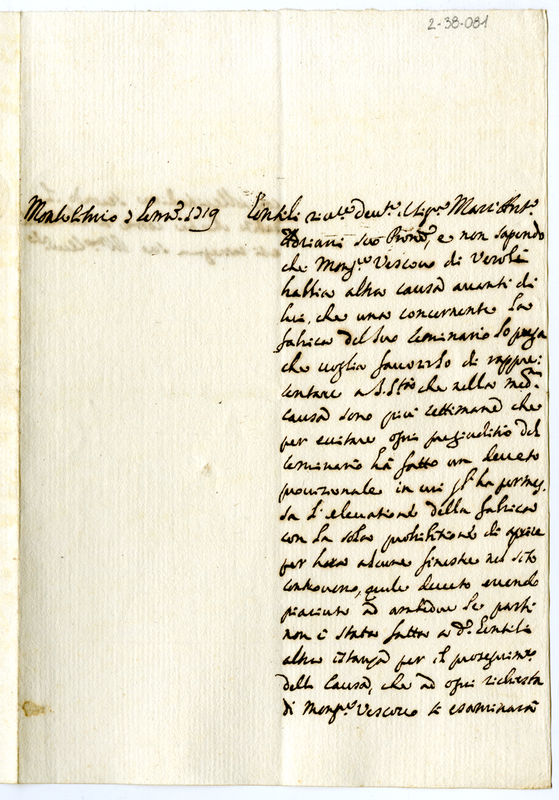 2-38-081
Montecitorio 3 Genn.º 1719 Gentili riv.te devt.e il Sig.re Marc'Ant.o
Adriani suo Pione, e non sapendo
che Mong.re Vescovo di Veroli
habbia altra causa avanti di
lui, che una concernente la
fabrica del suo Seminario lo prega
che voglia favorirlo di rappre:
sentare a S. S.tà che nella med.ma
causa sono più settimane che
per evitare ogni pregiuditio del
Seminario hà fatto un decreto
provizionale in cui gl'ha permes
sa l'elevatione della fabrica
con la sola prohibitione di aprire
per hora alcune finestre nel sito
controverso, quale decreto essendo
piaciuto ad ambidue le parti
non è stata fatta a d.º Gentili
altra istanza per il proseguim.º
della Causa, che ad ogni richiesta
di Mong.re Vescovo si esaminarà